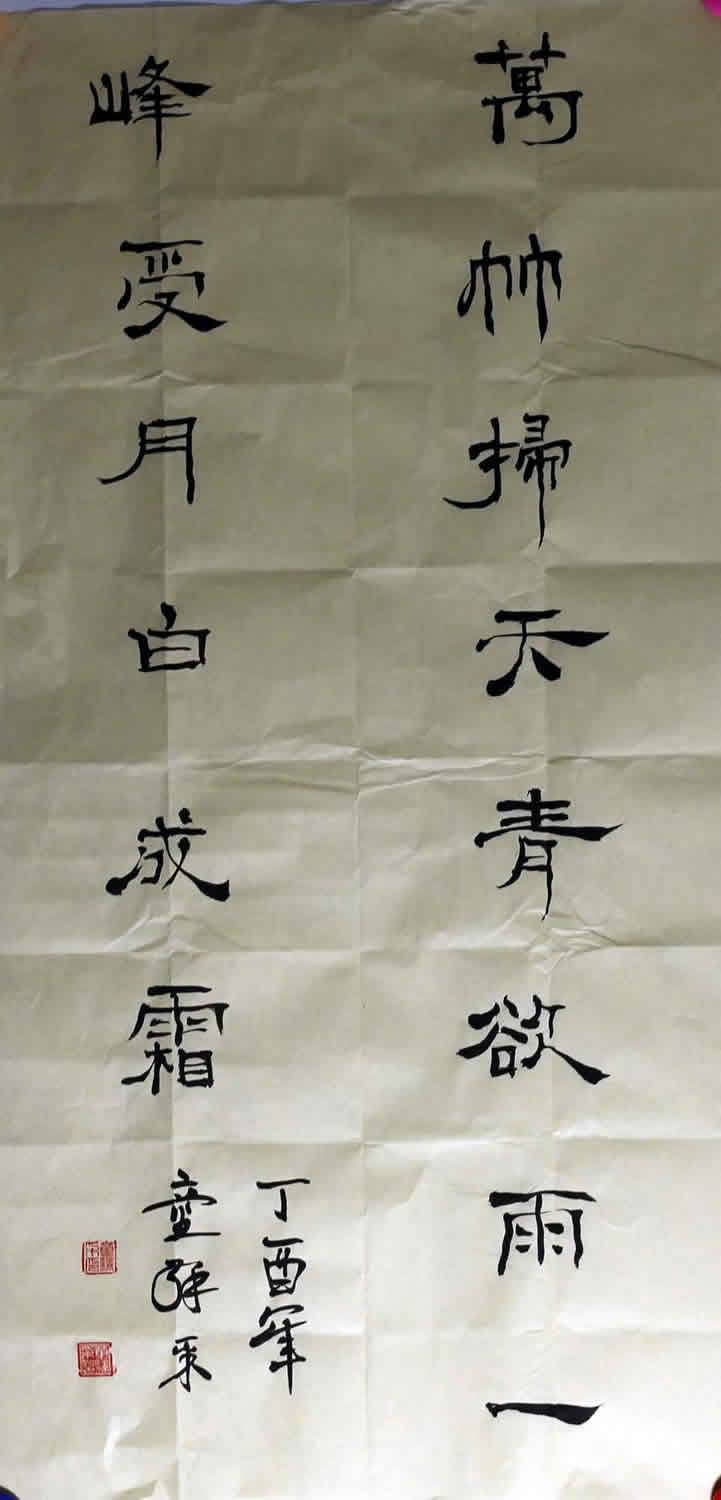 萬竹掃天青欲雨一
峰受月白成霜
丁酉年
童